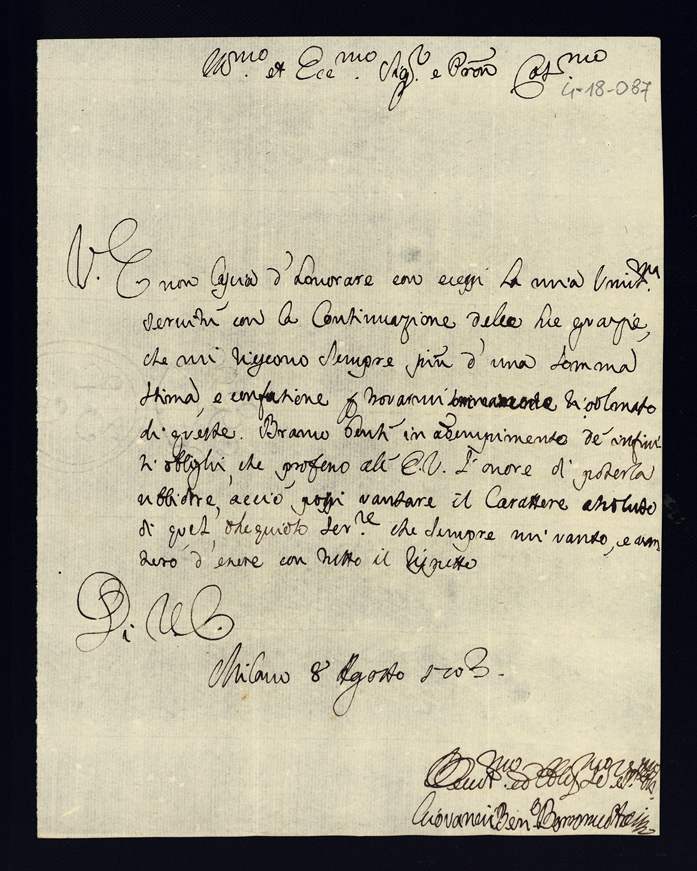 Ill.mo et Ecc.mo Sig.r e Pron Col.mo
4-18-087
V. E. non lascia d'honorare con eccessi la mia
servitù con la Continuazione delle sue grazie,
che mi riescono sempre più d'una somma
stima, e confusione p trovarmi ricolmato
di queste. Bramo in adempimento de
oblighi, che professo all' E.V. l'onore di poterla
ubbidire, acciò possi vantare il Carattere
di quel, ossequioso Ser.re che sempre mi vanto, e
d'essere con tutto il rispetto
Di V.E.
Milano 8 Agosto 1703.
Giovanni Ben.o Borromeo